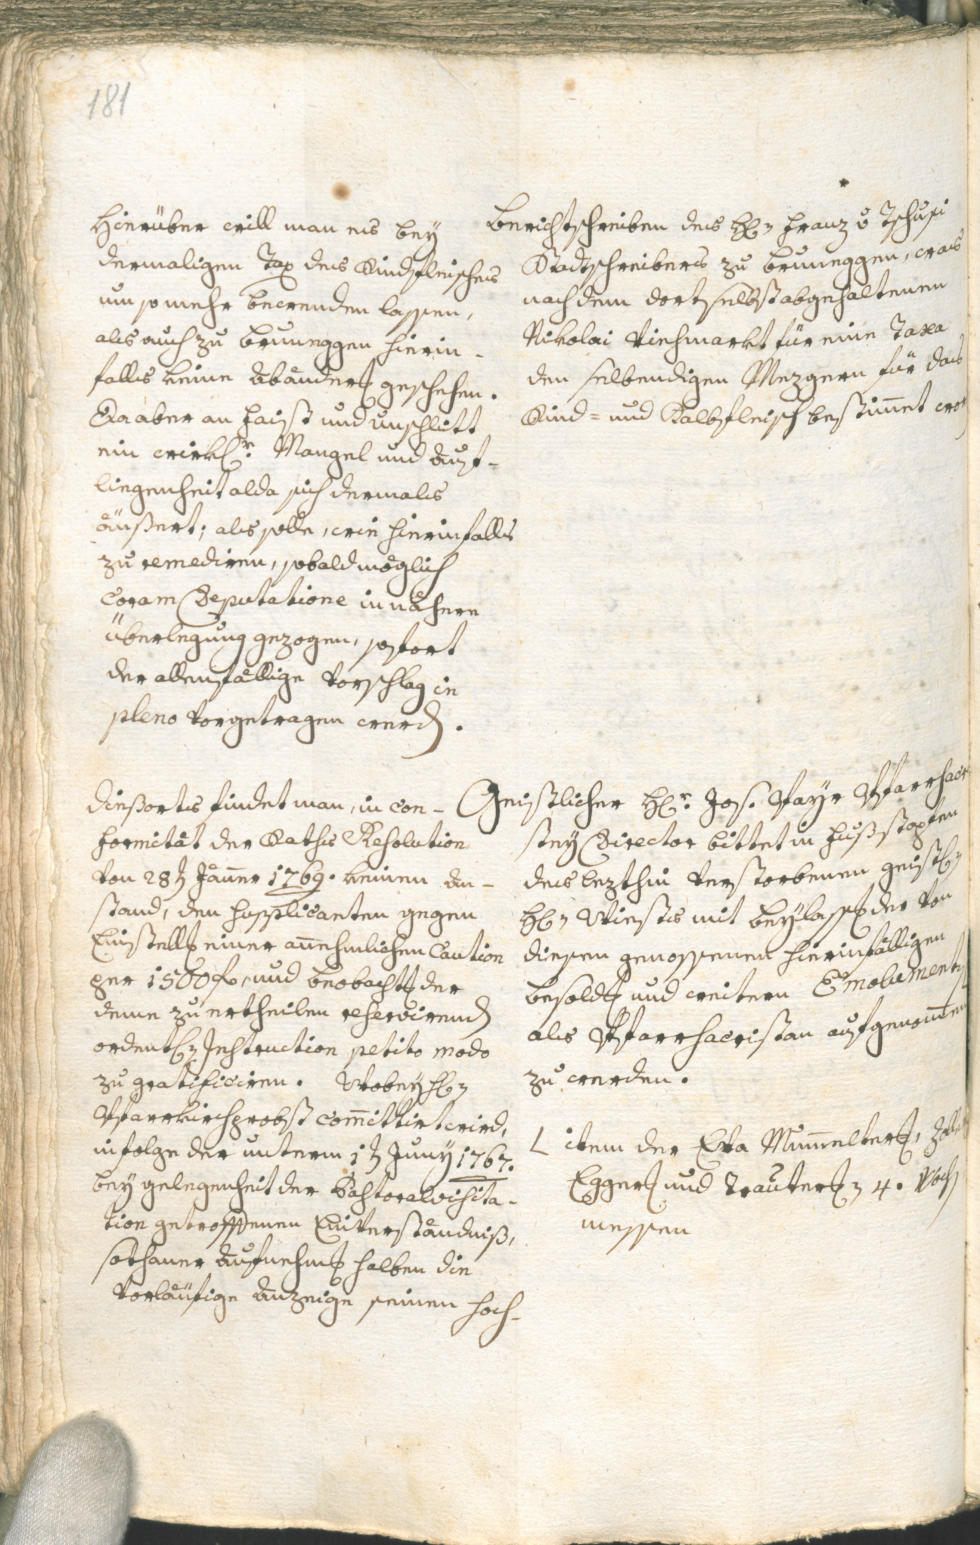 181
Hierüber will man es bey
dermaligen Tax des Rindfleisches
um so mehr bewenden lassen,
als auch zu Bruneggen hierin-
falls keine Abänderg geschehen.
Da aber an Faist und Unschlitt
ein wirkl.r Mangel und Auf-
liegenheit alda sich dermals
äußert; als solle, wie hierinfalls
zu remediren, sobald möglich
Coram Deputatione in nähere
Überlegung gezogen, sofort
der allenfällige Vorschlag in
pleno vorgetragen werd.
Berichtschreiben des H. Franz v Tschusi
Stadtschreibers zu Bruneggen, was
nach dem dortselbst abgehaltenen
Nikolai Viehmarkt für eine Taxa
den selbendigen Mezgern für das
Rind= und Kalbfleisch bestimmet wor
Dießorts findet man, in Con-
formität der Raths Resolution
von 28t Jänner 1769. keinen An-
stand, den Supplicanten gegen
Einstellg einer annehmlichen Caution
per 1500 f, und Beobachtg der
deme zu ertheilen reservirend
ordentl. Instruction petito modo
zu gratificiren. Wobey H.
Pfarrkirchprobst committirt wird,
infolge der unterm 1t Juny 1767.
bey gelegenheit der Pastoralvisita-
tion getroffenen Einverständniß,
sothaner Aufnehmg halben die
vorläufige Anzeige seinen Hoch-
Geistlicher H.r Jos. Mayr Pfarrsacri
stey Director bittet in Fußstapfen
des lezthin verstorbenen geistl.
H. Wiests mit Beylassg der von
diesen genossenen hierinfälligen
Besoldg und weitern Emolument
als Pfarrsacristan aufgenommen
zu werden.
L item der Eva Mummelterg,
Eggerg und Trauterg 4. Woch
messen